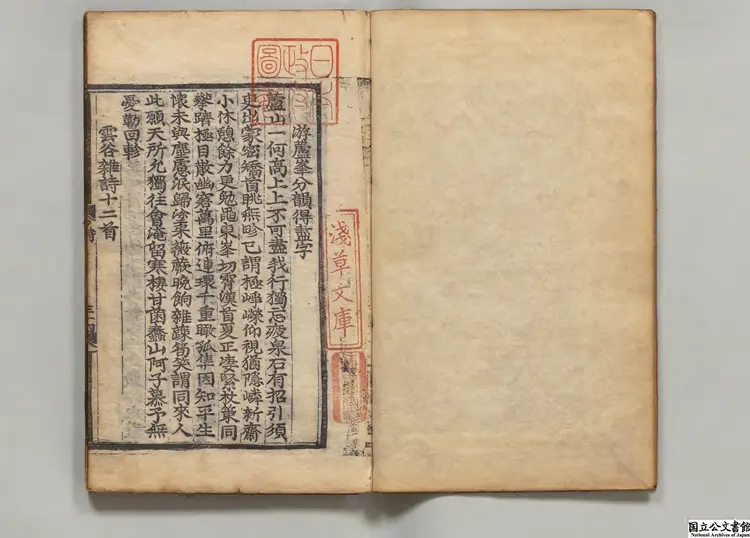 日本
政府
圖書
游蘆峯分韻得盡字
蘆山一何高上上不可盡我行獨忘疲泉石有招引須
臾出蒙密矯首眺無畛已謂極崢嶸仰視猶隱嶙新齋
小休憩餘力更勉黽東峯切霄漢首夏正凄緊杖策同
攀躋極目散幽窘萬里俯連環千重瞰孤隼因知平生
懷未與塵慮泯歸塗采薇蕨晚餉雜蔬筍笑謂同來人
此願天所允獨往會淹留寒棲甘菌蠢山阿子慕予無
憂勒回軫
雲谷雜詩十二首
淺草文庫
国立公文書館
National Archives of Japan